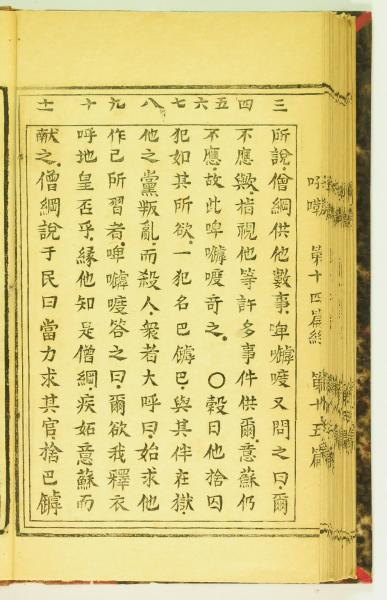 第十四篇終 第十五篇
三 所說。僧綱供他數事。啤嚘又問之曰。爾
四 不應歟。指視他等許多事件供爾。意蘇仍
五六 不應。故此啤嚘奇之。〇穀日他捨囚
七 犯如其所欲。一犯名巴巴。與其伴在獄。
八 他之黨叛亂。而殺人。衆若大呼曰。始求他
九 作己所習者。啤嚘答之曰。爾欲我釋衣
十 呼地皇否乎。緣他知是僧綱。疾妬意蘇而
十一 献之。僧綱說于民曰。當力求其官。捨巴